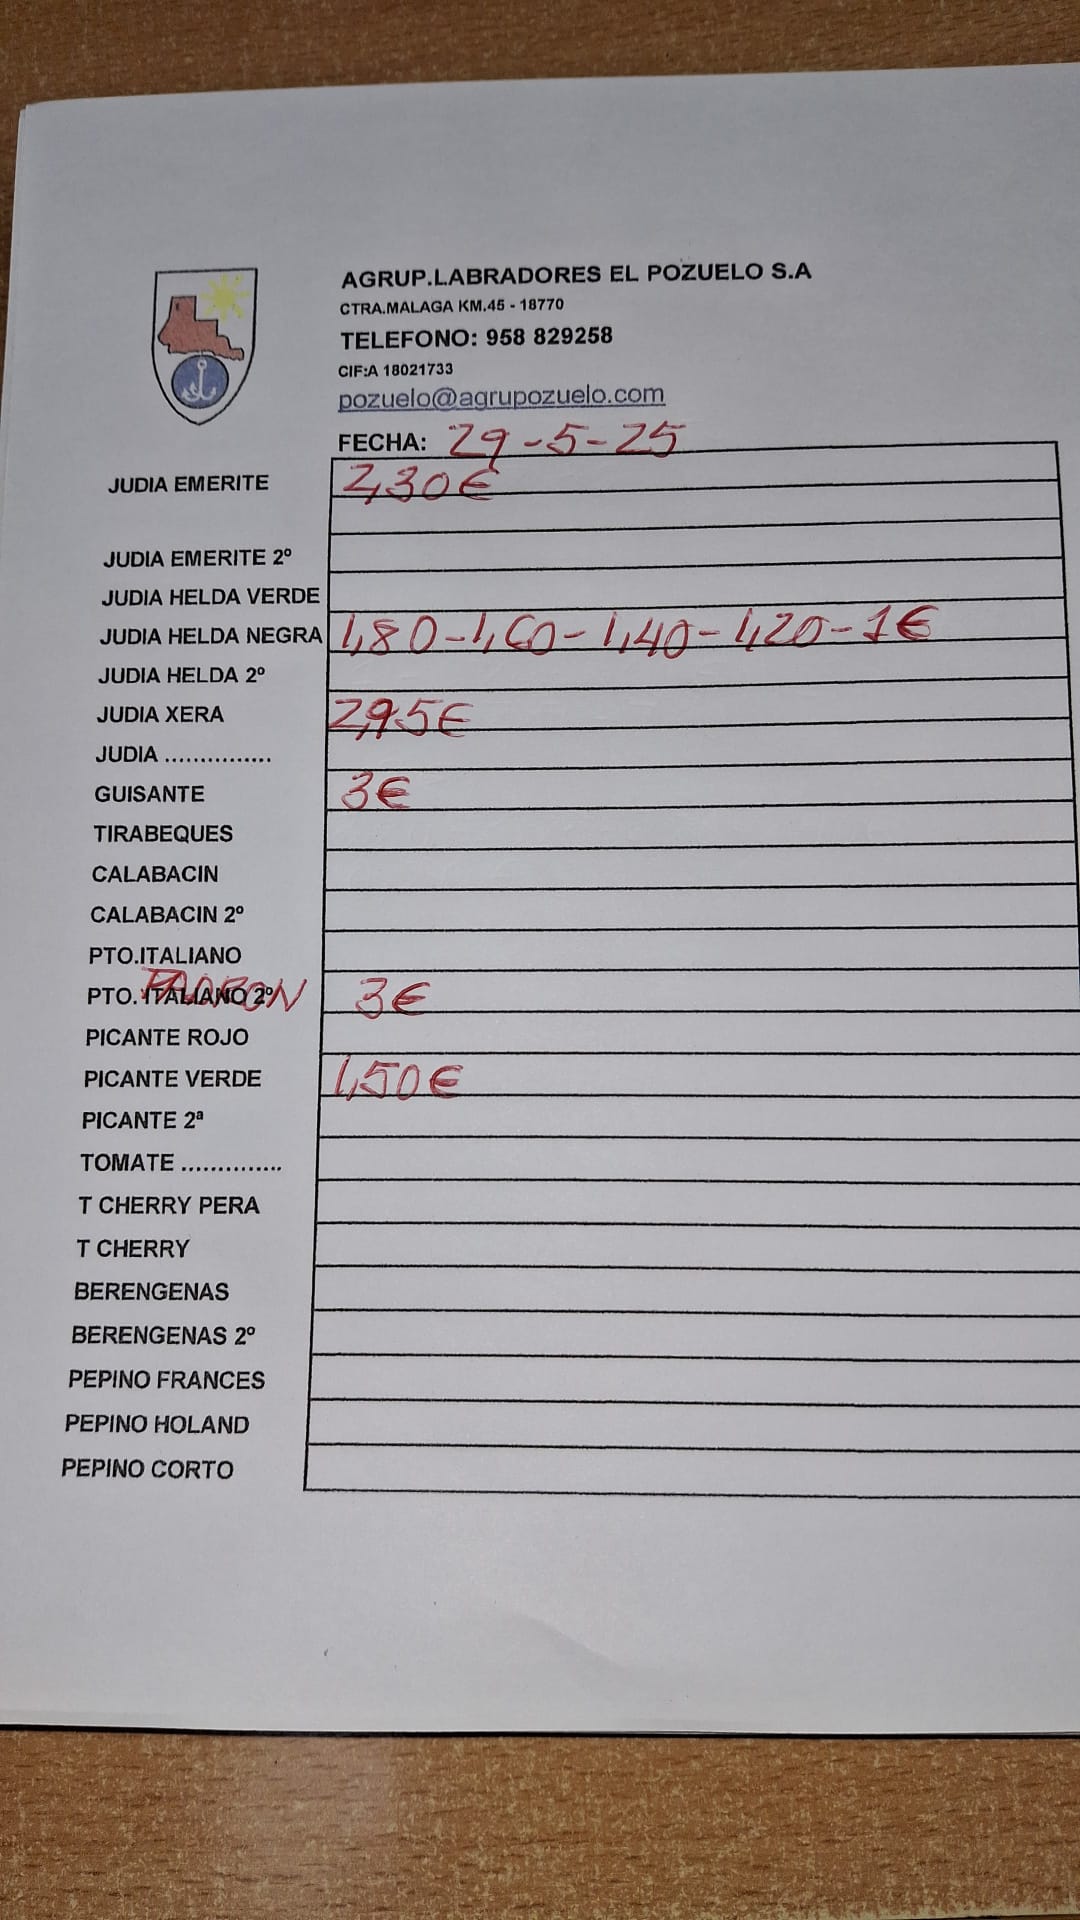 AGRUP.LABRADORES EL POZUELO S.A
CTRA.MALAGA KM.45 - 18770
TELEFONO: 958 829258
CIF:A 18021733
pozuelo@agrupozuelo.com
FECHA: 29-5-25
JUDIA EMERITE 2,30€
JUDIA EMERITE 2º
JUDIA HELDA VERDE
JUDIA HELDA NEGRA 1,80-1,60-1,40-1,20-1€
JUDIA HELDA 2º
JUDIA XERA 2,95€
JUDIA ...............
GUISANTE 3€
TIRABEQUES
CALABACIN
CALABACIN 2º
PTO.ITALIANO
PTO. ITALIANO 2º PADRON 3€
PICANTE ROJO
PICANTE VERDE 1,50€
PICANTE 2ª
TOMATE ..............
T CHERRY PERA
T CHERRY
BERENGENAS
BERENGENAS 2º
PEPINO FRANCES
PEPINO HOLAND
PEPINO CORTO